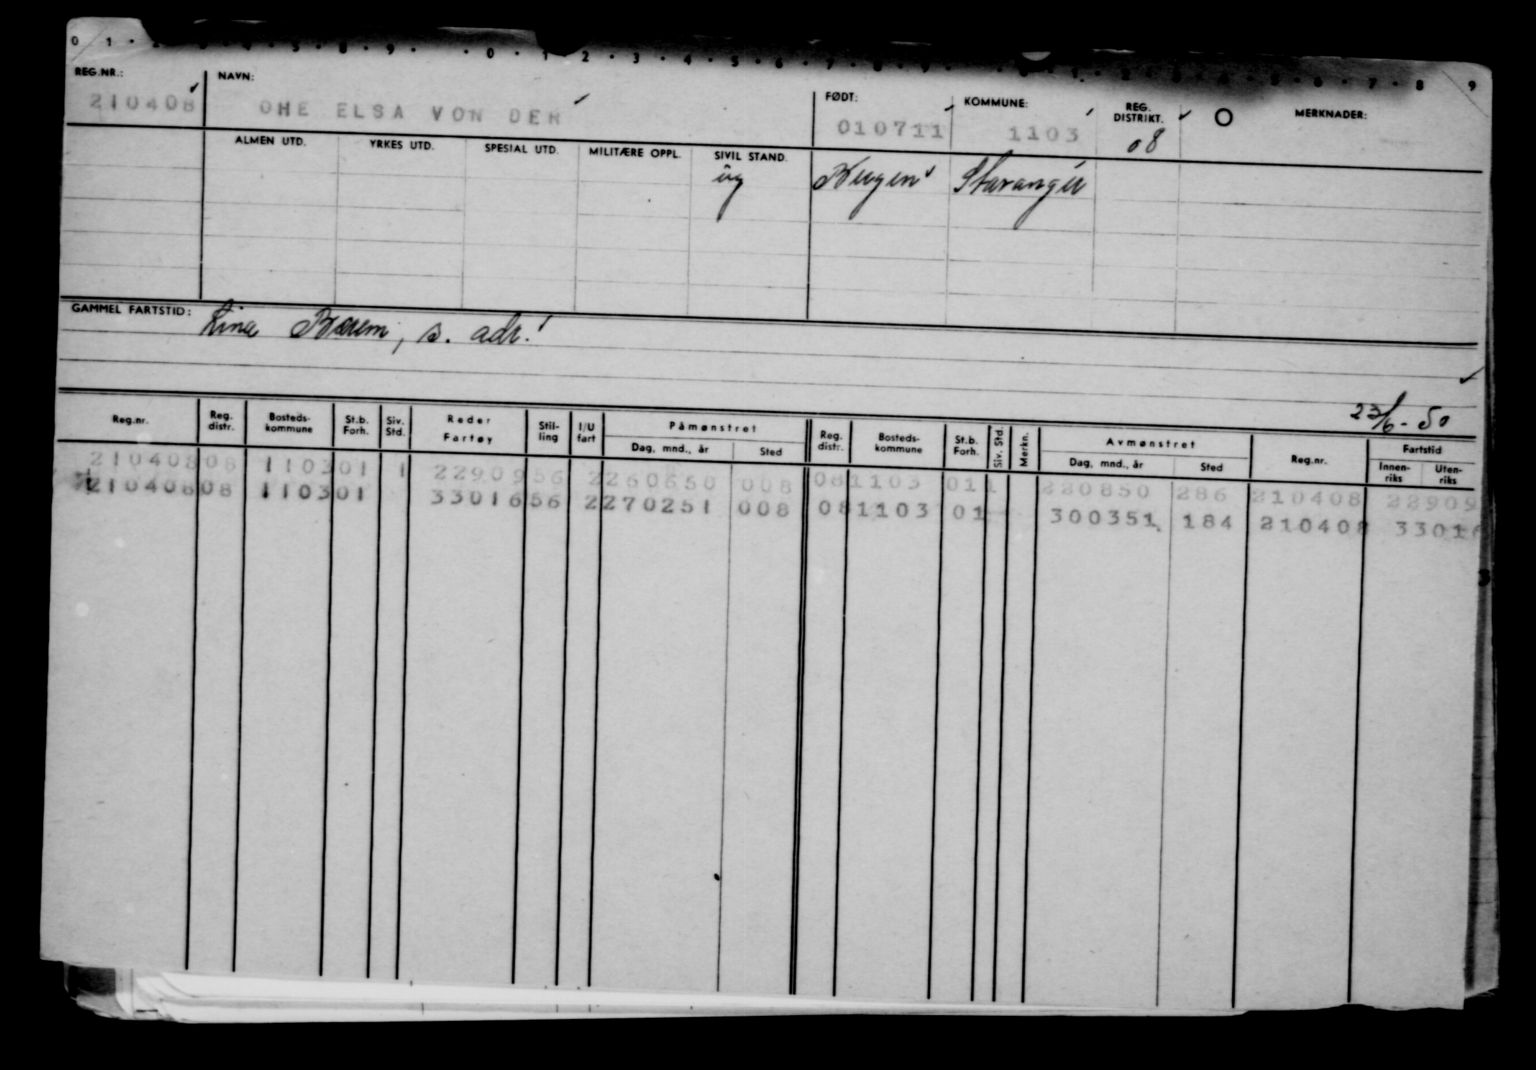 0 1 2 3 4 5 8 9 0 1 2 3 4 5 6 7 8 9 0 1 2 3 4 5 6 7 8 9
REG.NR.: NAVN: FØDT: KOMMUNE: REG. DISTRIKT. O MERKNADER:
210408 OHE ELSA VON DER 010711 1103 08
ALMEN UTD. YRKES UTD. SPESIAL UTD. MILITÆRE OPPL. SIVIL STAND.
ug Bergen Stavanger
GAMMEL FARTSTID: Lina s. adr.
23/6-50
Reg.nr. Reg. distr. Bosteds-kommune St.b. Forh. Siv. Std. Reder Fartøy Stil-ling I/U fart Påmønstret Dag, mnd., år Sted Reg. distr. Bosteds-kommune St.b. Forh. Siv. Std. Merkn. Avmønstret Dag, mnd., år Sted Reg.nr. Fartstid Innen-riks Uten-riks
210408 08 1103 01 1 22909 56 2 260650 008 08 1103 01 1 220850 286 210408 22909
210408 08 1103 01 33016 56 2 270251 008 08 1103 01 300351 184 210408 33016